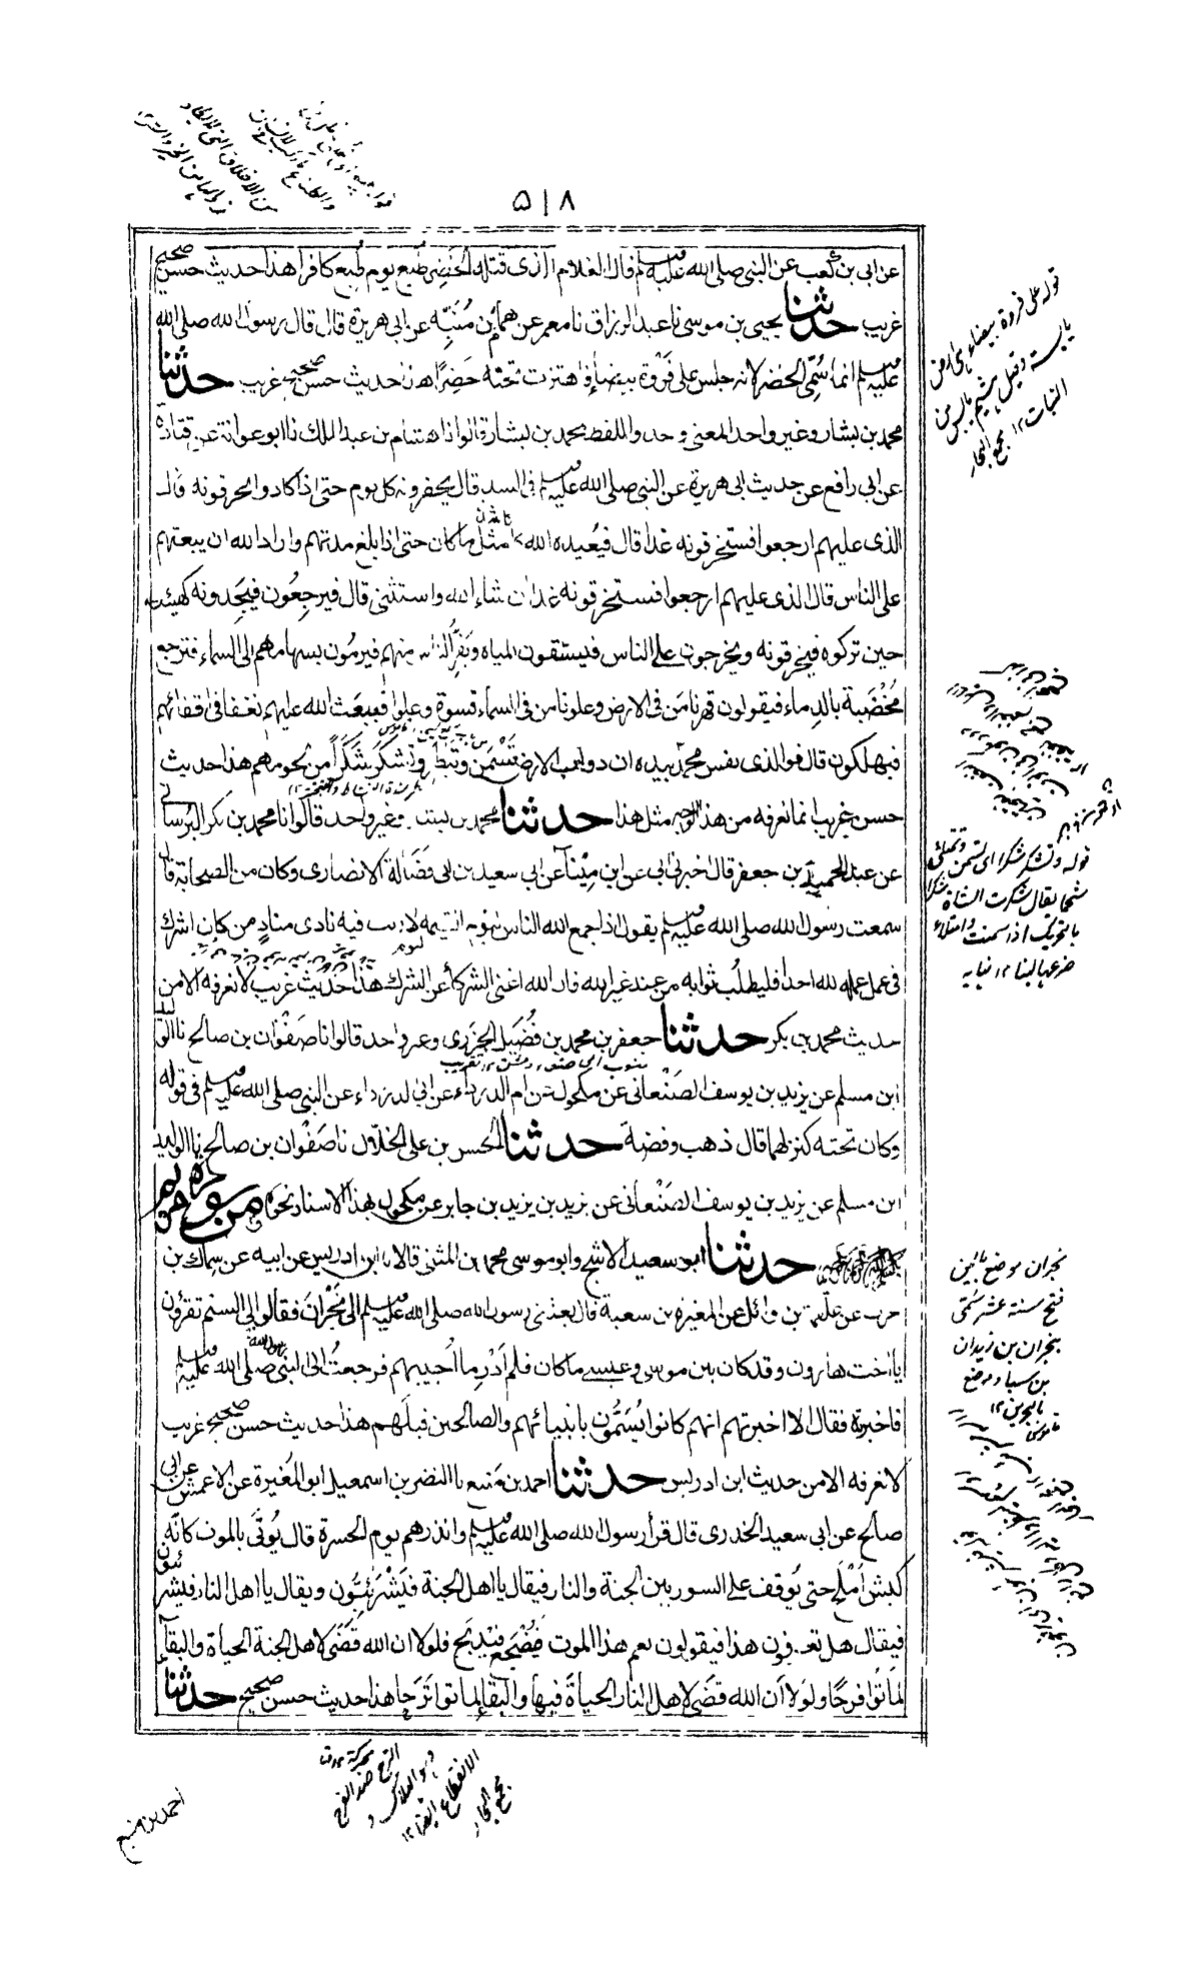 ۵۱۸
عن ابى بن كعب عن النبى صلى الله عليه وسلم قال الغلام الذى قتله الخضر طبع يوم طبع كافرا هذا حديث حسن صحيح
غريب حدثنا يحيى بن موسى نا عبد الرزاق نا معمر عن همام بن مُنَبِّه عن ابى هريرة قال قال رسول الله صلى الله
عليه وسلم انما سُمِّى الخضر لانه جلس على فَرْوة بيضاء فاهتزت تحته خَضِرًا هذا حديث حسن صحيح غريب حدثنا
محمد بن بشار وغير واحد المعنى وحد واللفظ محمد بن بشار قالوا نا هشام بن عبد الملك نا ابو عوانة عن قتادة
عن ابى رافع عن حديث ابى هريرة عن النبى صلى الله عليه وسلم فى السد قال يحفرونه كل يوم حتى اذا كادوا يخرقونه قال
الذى عليهم ارجعوا فستخرقونه غدا قال فيُعيده الله كامثل ما كان حتى اذا بلغ مدتهم واراد الله ان يبعثهم
على الناس قال الذى عليهم ارجعوا فستخرقونه غدا ان شاء الله واستثنى قال فيرجِعُون فيَجدونه كهيئته
حين تركوه فيخرقونه ويخرجون على الناس فيستقون المياه ويَفِرُّ الناس منهم فيرمُون بسهامهم الى السماء فترجع
مُخْضَبة بالدماء فيقولون قهرنا مَن فى الارض وعلونا من فى السماء قسوة وعلوا فيبعَث الله عليهم نغفا فى اقفائهم
فيهلكون قال فوالذى نفس محمد بيده ان دواب الارض تَسْمَن وتبطَر وتشكَر شَكَرًا من لحومهم هذا حديث
حسن غريب انما نعرفه من هذا الوجه مثل هذا حدثنا محمد بن بشار وغير واحد قالوا نا محمد بن بكر البرسانى
عن عبد الحميد بن جعفر قال اخبرنى ابى عن ابن مِيْناء عن ابى سعيد بن ابى فَضَالة الانصارى وكان من الصحابة قال
سمعت رسول الله صلى الله عليه وسلم يقول اذا جمع الله الناس ليوم القيمة لا ريب فيه نادى منادٍ من كان اشرك
فى عمل عمله لله احدا فليطلُب ثوابه من عند غير الله فان الله اغنى الشركاء عن الشرك هذا حديث غريب لا نعرفه الا من
حديث محمد بن بكر حدثنا جعفر بن محمد بن فُضَيل الجزرى وغير واحد قالوا نا صَفْوان بن صالح نا الوليد
ابن مسلم عن يزيد بن يوسف الصَنْعانى عن مكحول عن ام الدرداء عن ابى الدرداء عن النبى صلى الله عليه وسلم فى قوله
وكان تحته كنز لهما قال ذهب وفضة حدثنا الحسن بن على الخلال نا صَفْوان بن صالح نا الوليد
ابن مسلم عن يزيد بن يوسف الصَنْعانى عن يزيد بن يزيد بن جابر عن مكحول بهذا الاسناد نحوه ومن سورة مريم
حدثنا ابو سعيد الاشج وابو موسى محمد بن المثنى قالا نا ابن ادريس عن ابيه عن سماك بن
حرب عن علقمة بن وائل عن المغيرة بن شعبة قال بعثنى رسول الله صلى الله عليه وسلم الى نَجْرَان فقالوا لى الستم تقرؤن
يا اخت هارون وقد كان بين موسى وعيسى ما كان فلم اَدْرِ ما اُجيبهم فرجعتُ الى النبى صلى الله عليه وسلم
فاخبرته فقال الا اخبرتهم انهم كانوا يُسَمُّون بانبيائهم والصالحين قبلهم هذا حديث حسن صحيح غريب
لا نعرفه الا من حديث ابن ادريس حدثنا احمد بن منيع نا النضر بن اسمعيل ابو المُغيرة عن الاعمش عن ابى
صالح عن ابى سعيد الخدرى قال قرأ رسول الله صلى الله عليه وسلم وانذرهم يوم الحسرة قال يُوتى بالموت كانّه
كبش اَمْلَح حتى يُوقف على السور بين الجنة والنار فيقال يا اهل الجنة فيَشْرَئِبُّون ويقال يا اهل النار فيشرئبون
فيقال هل تعرفون هذا فيقولون نعم هذا الموت فيُضْجَع فيُذبح فلولا ان الله قَضَى لاهل الجنة الحياة والبقاء
لماتُوا فرحًا ولَولا اَن الله قضى لاهل النار الحياةَ فيها والبقاء لماتوا تَرَحا هذا حديث حسن صحيح حدثنا
احمد بن منيع
قوله على فروة بيضاء هى ارض
يابسة وقيل هشيم يابس من
النبات ۱۲ مجمع البحار
قوله وتشكر شكرا اى تسمن وتمتلئ
شحما يقال شكرت الشاة شكرا
بالتحريك اذا سمنت وامتلاء
ضرعها لبنا ۱۲ نهاية
نجران موضع باليمن
فتح سنة عشر سُمّى
بنجران بن زيدان
بن سبا وموضع
بالبحرين ۱۲
قاموس
الترح ضد الفرح
وهو الهلاك و
الانقطاع ايضا ۱۲
مجمع البحار